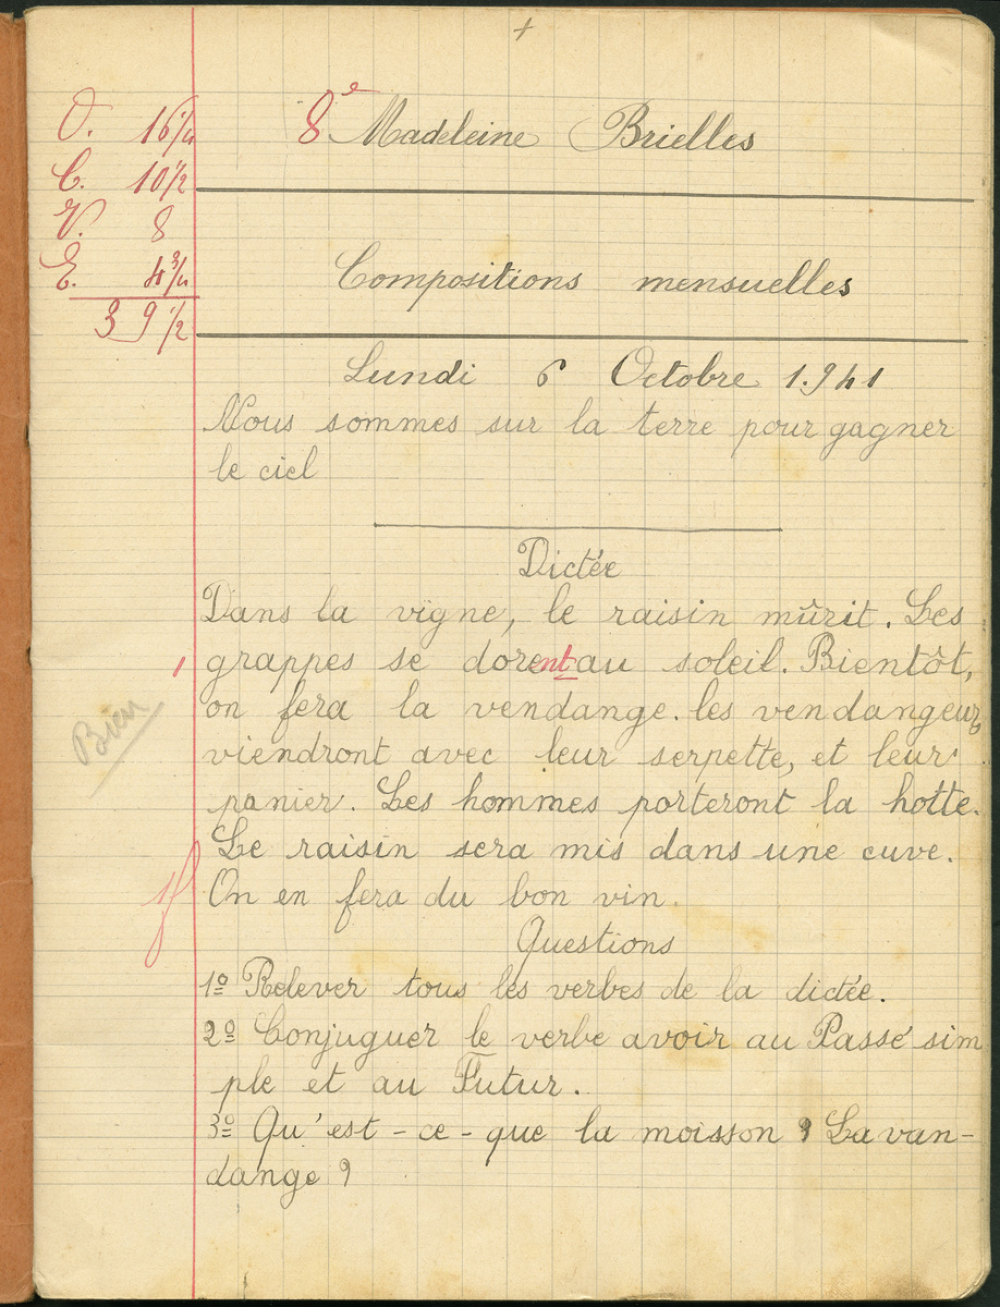 +
O. 16 1/4 8e Madeleine Brielles
C. 10 1/2
V. 8
E. 4 3/4 Compositions mensuelles
39 1/2
Lundi 6 Octobre 1.941
Nous sommes sur la terre pour gagner
le ciel
Dictée
Dans la vigne, le raisin mûrit. Les
1 grappes se dorent au soleil. Bientôt,
on fera la vendange. les vendangeurs
Bien
viendront avec leur serpette, et leur
panier. Les hommes porteront la hotte.
Le raisin sera mis dans une cuve.
1f On en fera du bon vin.
Questions
1º Relever tous les verbes de la dictée.
2º Conjuguer le verbe avoir au Passé sim
ple et au Futur.
3º Qu'est-ce-que la moisson ? La van-
dange ?